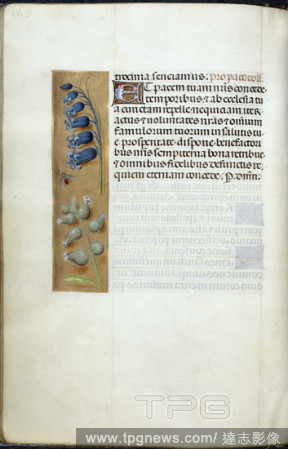 168
trocinia sentiamus. pro pace coll
Et pacem tuam nris concede
temporibus & ab ecclesia tu
a cunctam repelle nequitiam iter
actus & voluntates nras & omnium
famulorum tuorum in salutis tu
e prosperitate dispone benefactori
bus nris sempiterna bona retribue
& omnibus fidelibus defunctis re
quiem eternam concede. P. domin.
TPG
www.tpgnews.com/達志影像